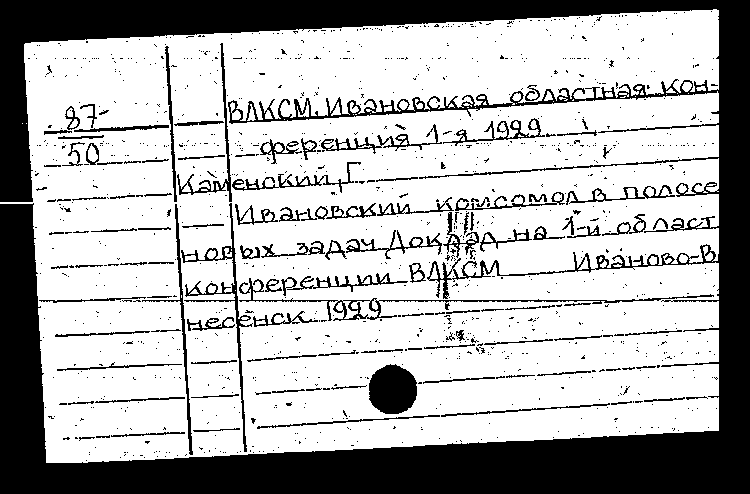 87-
50
ВЛКСМ. Ивановская областная кон-
ференция, 1-я 1929.
Каменский, Г.
Ивановский комсомол в полосе
новых задач Доклад на 1-й област
конференции ВЛКСМ Иваново-В
несенск 1929